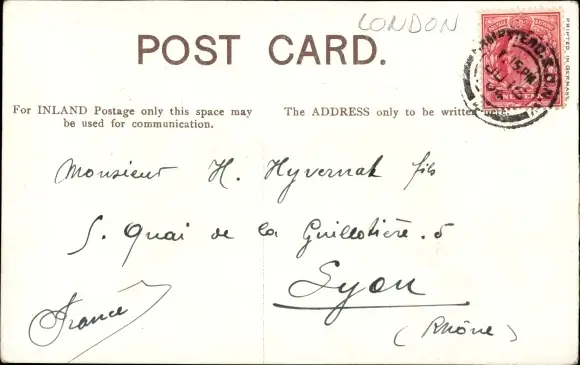 LONDON
POST CARD.
PRINTED IN GERMANY
For INLAND Postage only this space may
be used for communication.
The ADDRESS only to be written here.
Monsieur H. Hyvernat fils
5. Quai de la Guillotière. 5
Lyon
(Rhône)
France